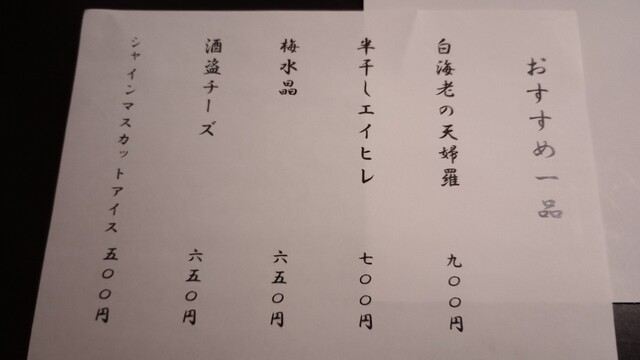 おすすめ一品
白海老の天婦羅 九〇〇円
半干しエイヒレ 七〇〇円
梅水晶 六五〇円
酒盗チーズ 六五〇円
シャインマスカットアイス 五〇〇円